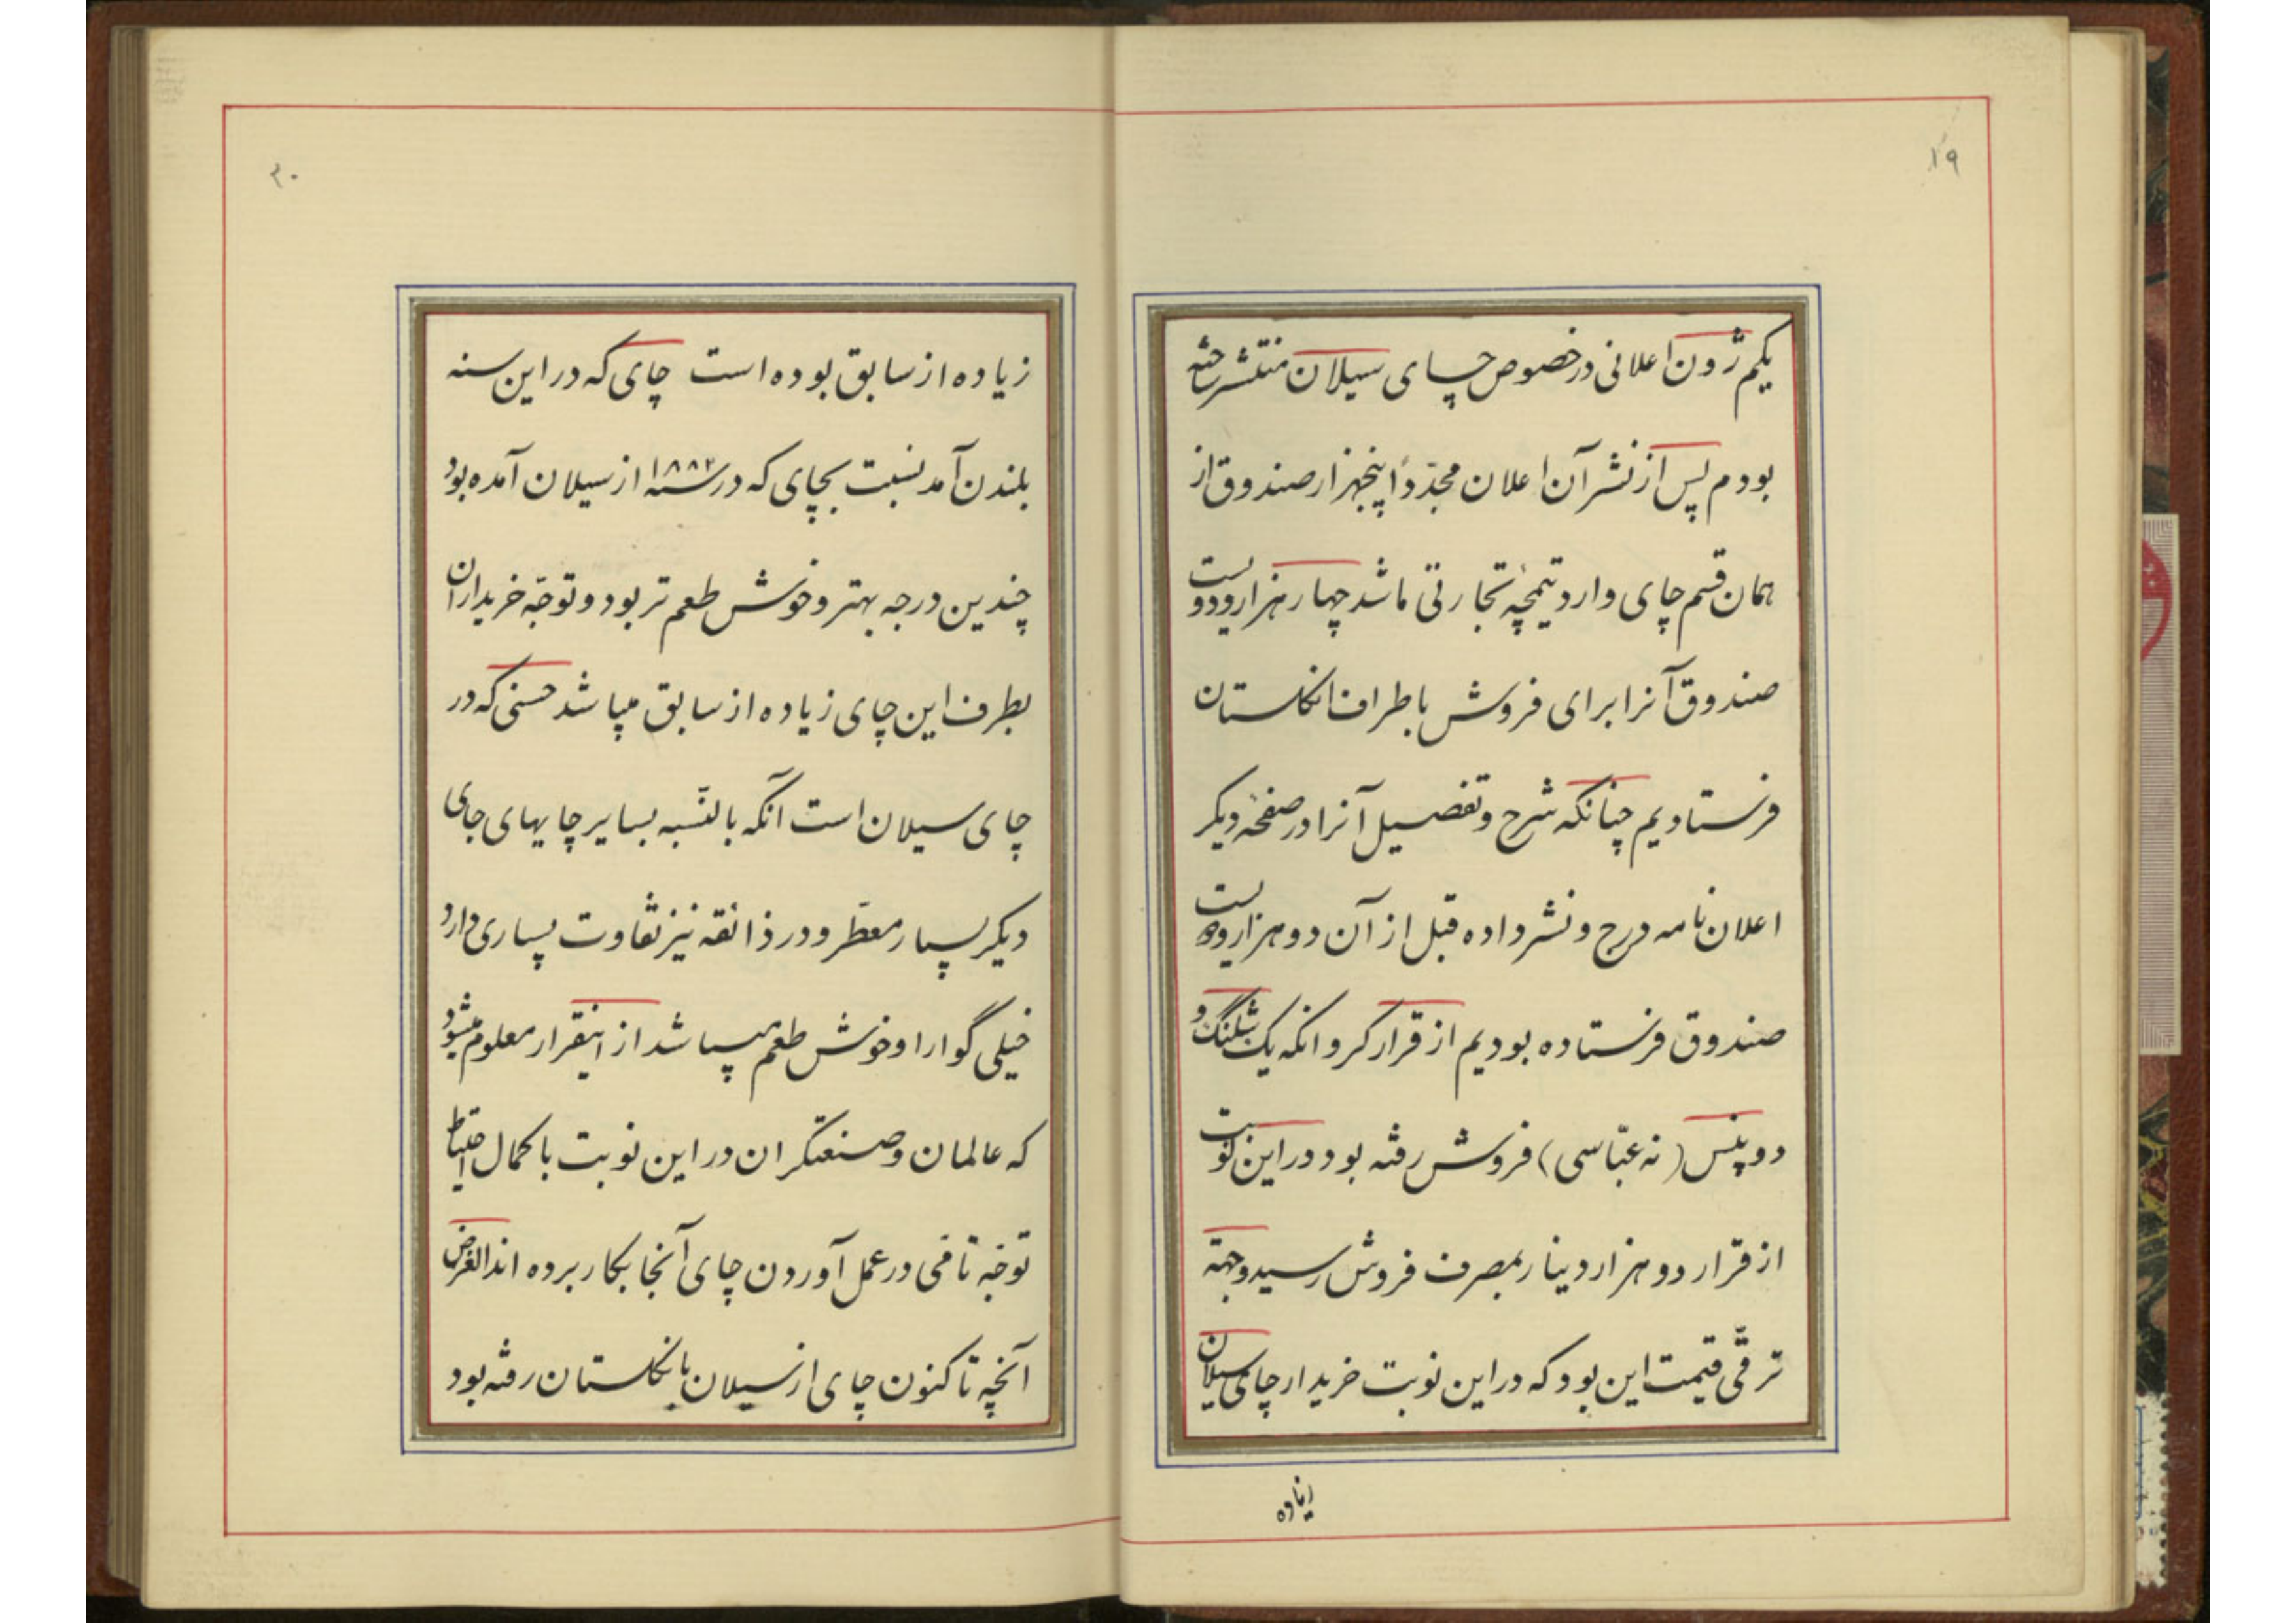 ۱۹
یکم ژون اعلانی در خصوص چای سیلان منتشر ساخته
بودم پس از نشر آن اعلان مجدّداً پنجهزار صندوق از
همان قسم چای وارد تیمچهٔ تجارتی ما شد چهار هزار و دویست
صندوق آنرا برای فروش باطراف انگلستان
فرستادیم چنانکه شرح و تفصیل آنرا در صفحهٔ دیگر
اعلان نامه درج و نشر داده قبل از آن دو هزار و دویست
صندوق فرستاده بودیم از قرار کروانکه یک شلنگ و
دو پنس (نه عبّاسی) فروش رفته بود در این نوبت
از قرار دو هزار دینار بمصرف فروش رسید و جهة
ترقّی قیمت این بود که در این نوبت خریدار چای سیلان
زیاده
۲۰
زیاده از سابق بوده است چای که در این سنه
بلندن آمد نسبت بچای که در سنه ۱۸۸۳ از سیلان آمده بود
چندین درجه بهتر و خوش طعم تر بود و توجّه خریداران
بطرف این چای زیاده از سابق میباشد حسنی که در
چای سیلان است آنکه بالنّسبه بسایر چایهای جای
دیگر بسیار معطّر و در ذائقه نیز تفاوت بسیاری دارد
خیلی گوارا و خوش طعم میباشد از اینقرار معلوم میشود
که عالمان و صنعتگران در این نوبت با کمال احتیاط
توجّه تامّی در عمل آوردن چای آنجا بکار برده اند الغرض
آنچه تا کنون چای از سیلان بانگلستان رفته بود